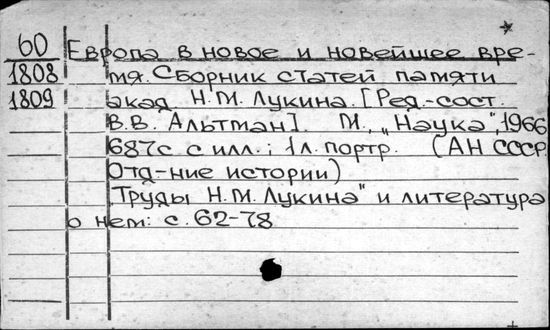 60 Европа в новое и новейшее вре-
1808 мя. Сборник статей памяти
1809 акад. Н.М. Лукина. [Ред.-сост.
В.В. Альтман]. М., „Наука", 1966
687с с илл.; 1л. портр. (АН СССР.
Отд-ние истории)
„Труды Н.М. Лукина" и литература
о нем: с. 62-78